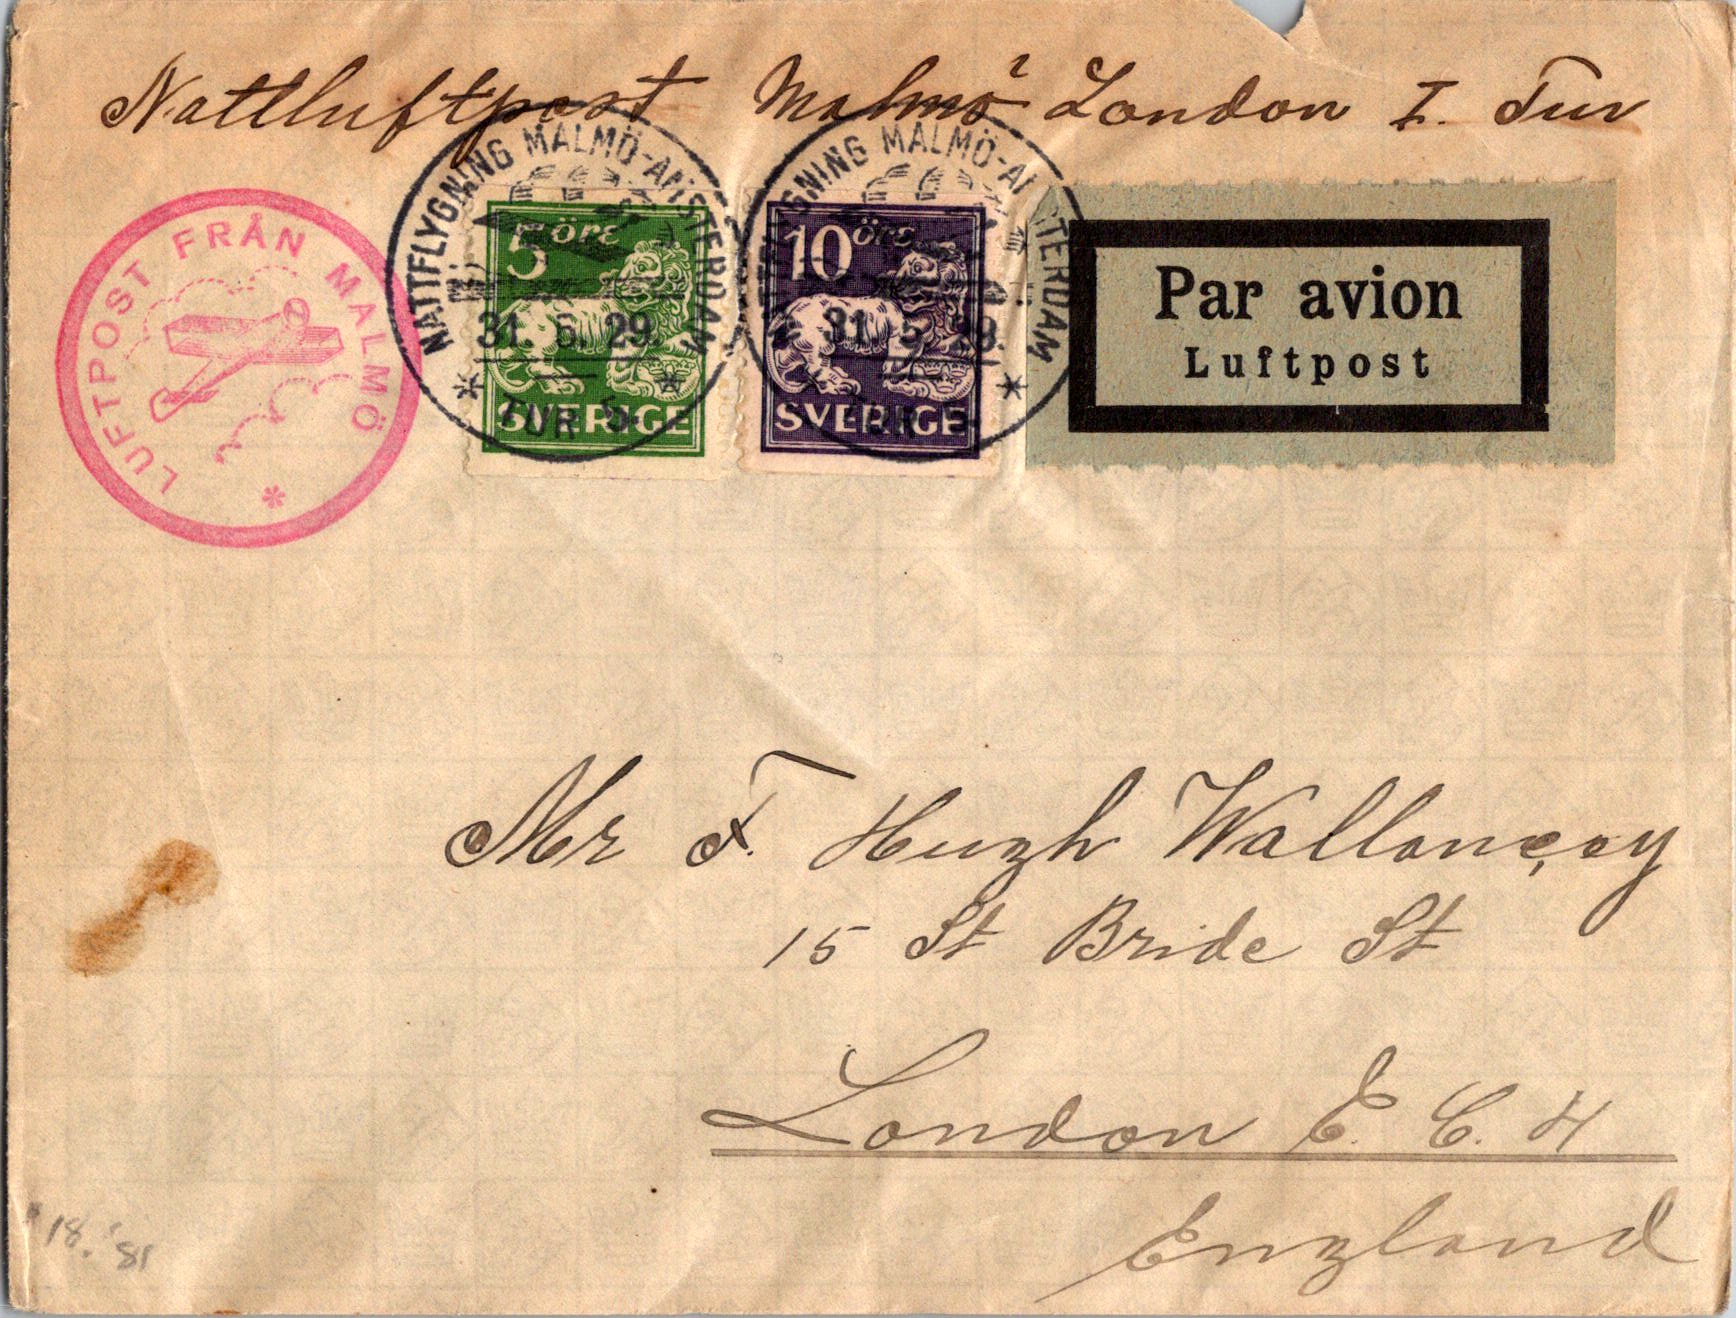 Nattluftpost Malmö London I. Tur
LUFTPOST FRÅN MALMÖ *
NATTFLYGNING MALMÖ-AMSTERDAM
31. 5. 29.
* TUR 5. *
5 öre
SVERIGE
NATTFLYGNING MALMÖ-AMSTERDAM
31. 5. 29.
* TUR 5. *
10 öre
SVERIGE
Par avion
Luftpost
Mr F. Hugh Vallancey
15 St Bride St
London E. C. 4
England